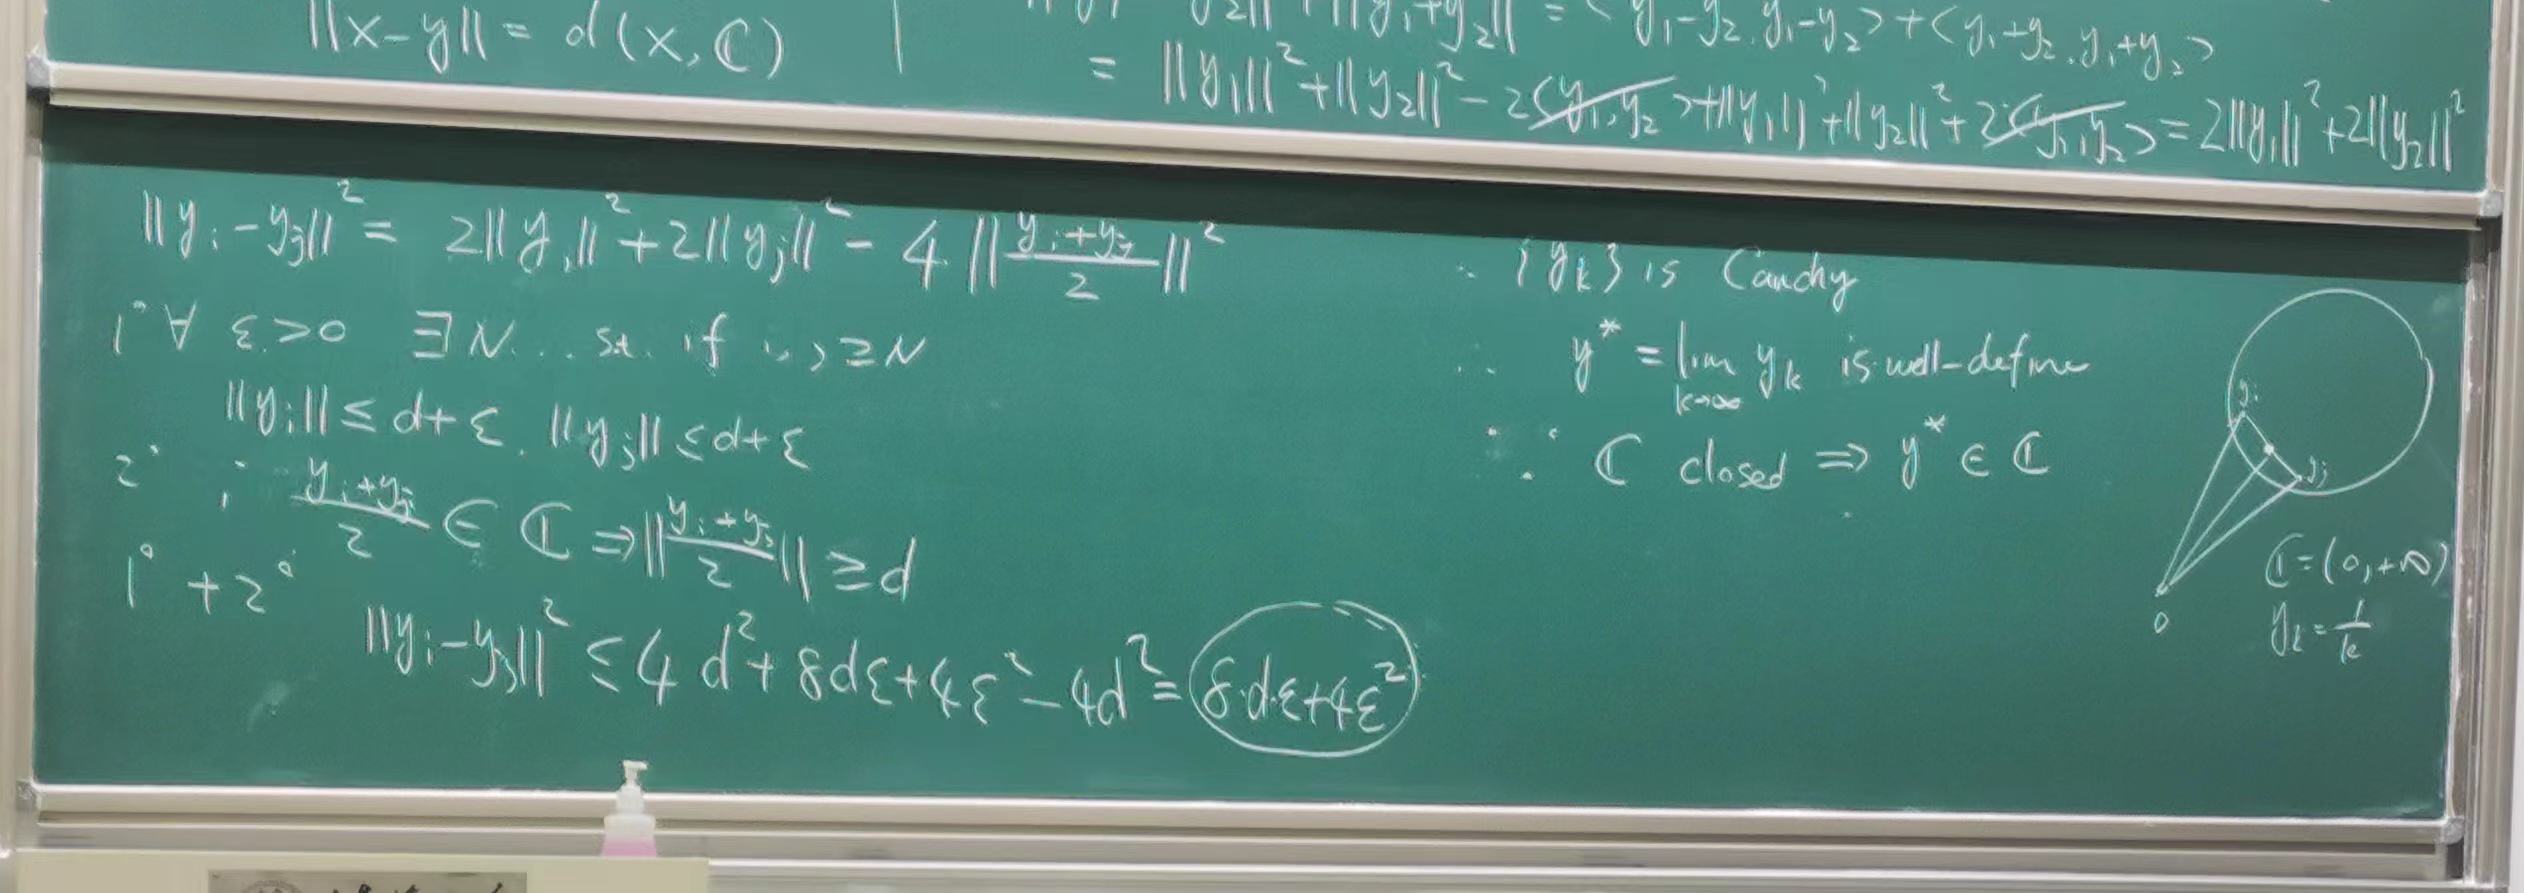 ||x-y|| = d(x, ℂ)
y₂|| + ||y₁+y₂|| = <y₁-y₂, y₁-y₂> + <y₁+y₂, y₁+y₂>
= ||y₁||² + ||y₂||² - 2<y₁, y₂> + ||y₁||² + ||y₂||² + 2<y₁, y₂> = 2||y₁||² + 2||y₂||²
||yᵢ-yⱼ||² = 2||yᵢ||² + 2||yⱼ||² - 4 ||(yᵢ+yⱼ)/2||²
1° ∀ ε>0 ∃N... st. if i, j ≥ N
||yᵢ|| ≤ d+ε, ||yⱼ|| ≤ d+ε
2° ∵ (yᵢ+yⱼ)/2 ∈ ℂ ⇒ ||(yᵢ+yⱼ)/2|| ≥ d
1° + 2°
||yᵢ-yⱼ||² ≤ 4d² + 8dε + 4ε² - 4d² = 8·d·ε+4ε²
∴ {yₖ} is Cauchy
∴ y* = lim k→∞ yₖ is well-define
∵ ℂ closed ⇒ y* ∈ ℂ
yᵢ
yⱼ
0
ℂ = (0, +∞)
yₖ = 1/k